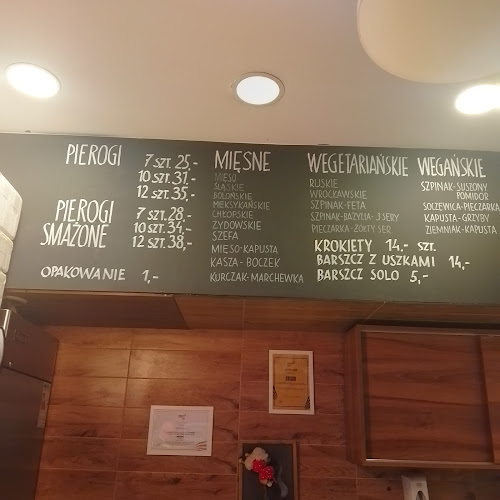 PIEROGI
7 SZT. 25,-
10 SZT. 31,-
12 SZT. 35,-
PIEROGI
SMAŻONE
7 SZT. 28,-
10 SZT. 34,-
12 SZT. 38,-
OPAKOWANIE 1,-
MIĘSNE
MIĘSO
ŚLĄSKIE
BOLOŃSKIE
MEKSYKAŃSKIE
CHŁOPSKIE
ŻYDOWSKIE
SZEFA
MIĘSO-KAPUSTA
KASZA-BOCZEK
KURCZAK-MARCHEWKA
WEGETARIAŃSKIE
RUSKIE
WROCŁAWSKIE
SZPINAK-FETA
SZPINAK-BAZYLIA-3 SERY
PIECZARKA-ŻÓŁTY SER
WEGAŃSKIE
SZPINAK-SUSZONY
POMIDOR
SOCZEWICA-PIECZARKA
KAPUSTA-GRZYBY
ZIEMNIAK-KAPUSTA
KROKIETY 14,- SZT.
BARSZCZ Z USZKAMI 14,-
BARSZCZ SOLO 5,-